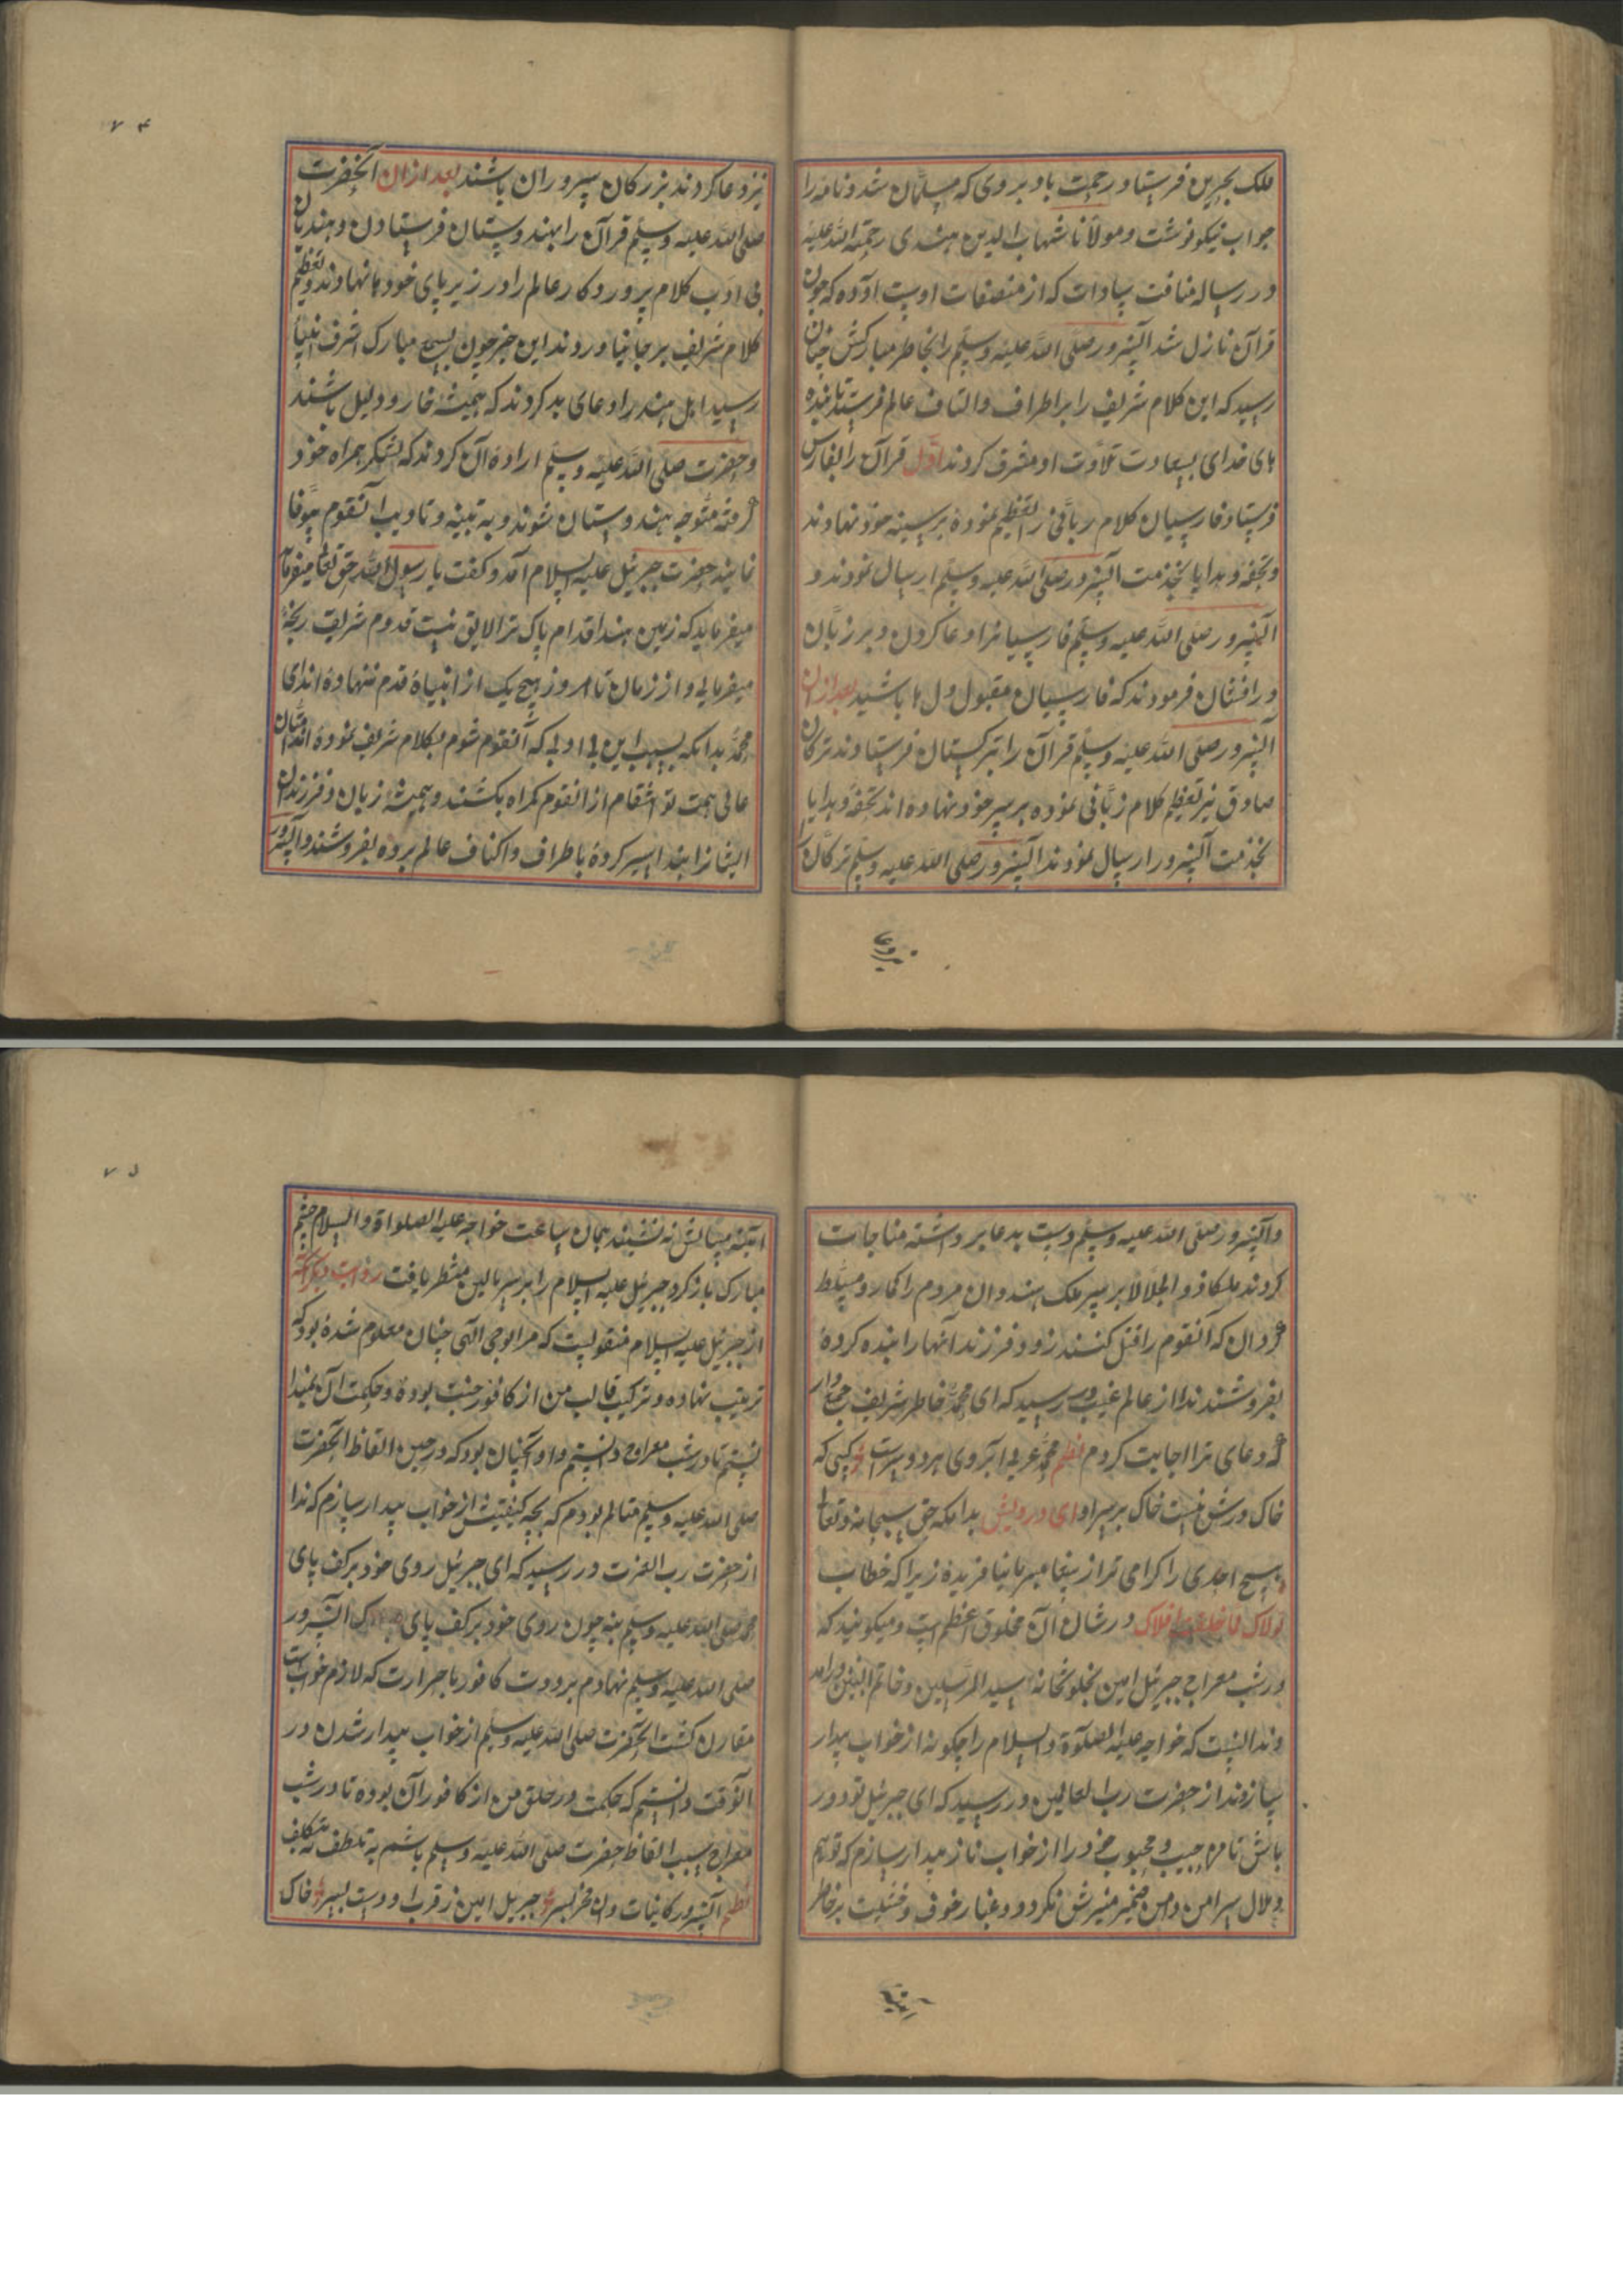 ملک بحرین فرستاد و رحمت باد بروی که مسلمان شد و نامه را
جواب نیکو نوشت و مولانا شهاب الدین هندی رحمة الله علیه
در رساله مناقب سادات که از مصنفات اوست آورده که چون
قرآن نازل شد آنسرور صلی الله علیه وسلم را بخاطر مبارکش چنان
رسید که این کلام شریف را بر اطراف و اکناف عالم فرستد تا بنده
های خدای بسعادت تلاوت او مشرف کردند اول قرآن را بفارس
فرستاد فارسیان کلام ربانی را تعظیم نموده بر سینه خود نهادند
و تحفه و هدایا بخدمت آنسرور صلی الله علیه وسلم ارسال نمودند و
آنسرور صلی الله علیه وسلم فارسیانرا دعا کردن و بر زبان
در افشان فرمودند که فارسیان مقبول دل ها باشید بعد از ان
آنسرور صلی الله علیه وسلم قرآن را بترکستان فرستادند ترکان
صادق نیز تعظیم کلام ربانی نموده بر سر خود نهاده اند تحفه و هدایا
بخدمت آنسرور ارسال نمودند آنسرور صلی الله علیه وسلم ترکان را
نیز دعا کردند بزرکان سروران باشند بعد از ان آنحضرت
صلی الله علیه وسلم قرآن را بهندوستان فرستادن و هندیان
بی ادب کلام پروردکار عالم را در زیر پای خود ها نهادند و تعظیم
کلام شریف بر جا نیاوردند این خبر چون بسمع مبارک اشرف انبیا
رسید اهل هند را دعای بد کردند که همیشه خار و ذلیل باشند
و حضرت صلی الله علیه وسلم اراده آن کردند که لشکر همراه خود
کرفته متوجه هندوستان شوند و به تنبیه و تادیب آنقوم بیوفا
نمایند حضرت جبرئیل علیه السلام آمد و کفت یا رسول الله حق تعالی میفرماید
میفرماید که زمین هند اقدام پاک ترا لایق نیست قدوم شریف رنجه
میفرمائی و از زمان تا امروز هیچ یک از انبیاء قدم ننهاده اند ای
محمد بدانکه بسبب این بی ادبی که آنقوم شوم بکلام شریف نموده اند امتان
عالی همت تو انتقام از انقوم کمراه بکشند و همیشه زنان و فرزندان
ایشانرا بند اسیر کرده باطراف و اکناف عالم برده بفروشند و آنسرور
وآنسرور صلی الله علیه وسلم دست بدعا برداشته مناجات
کردند ملکا ذو الجلالا بر سر ملک هندوان مردم را کمار و مسلط
کردان که آنقوم را قتل کنند زن و فرزند آنها را بنده کرده
بفروشند ندا از عالم غیب در رسید که ای محمد خاطر شریف جمع دار
که دعای ترا اجابت کردم نظم محمد عربی آبروی هر دو سراست کسی که
خاک درش نیست خاک بر سر او ای درویش بدانکه حق سبحانه و تعالی
هیچ احدی را کرامی تر از پیغامبر ما نیافریده زیرا که خطاب
لولاک لما خلقت افلاک در شان آن مخلوق اعظم است و میکویند که
در شب معراج جبرئیل امین بخلوتخانه سید المرسلین و خاتم النبیین درامد
و ندانست که خواجه علیه الصلوة والسلام را چکونه از خواب بیدار
سازد ندا از حضرت رب العالمین در رسید که ای جبرئیل تو دور
باش تا من حبیب و محبوب خود را از خواب ناز بیدار سازم که توهم
و ملال پیرامن دامن ضمیر منیرش نکردد و غبار خوف و خشیت بر خاطر
آیینه مثالش نه نشیند همان ساعت خواجه علیه الصلواة والسلام چشم
مبارک باز کرد جبرئیل علیه السلام را بر سر بالین منتظر یافت روایت دیکر آنکه
از جبرئیل علیه السلام منقولست که مرا بوحی الهی چنان معلوم شده بود که
ترتیب نهاده و ترکیب قالب من از کافور جنت بوده و حکمت آن نمیدا
نستم تا در شب معراج دانستم و او آنچنان بود که در حین ایقاظ آنحضرت
صلی الله علیه وسلم متالم بودم که بچه کیفیتش از خواب بیدار سازم که ندا
از حضرت رب العزت در رسید که ای جبرئیل روی خود بر کف پای
محمد صلی الله علیه وسلم بنه چون روی خود بر کف پای مبارک آنسرور
صلی الله علیه وسلم نهادم برودت کافور با حرارت که لازم خواب است
مقارن کشت آنحضرت صلی الله علیه وسلم از خواب بیدار شدن در
آنوقت دانستم که حکمت در خلق من از کافور آن بوده تا در شب
معراج بسبب ایقاظ حضرت صلی الله علیه وسلم باشم به تلطف نه بتکلف
نظم آنسرور کاینات وان فخر بشر جبریل امین ز قرب او دست بسر خاک